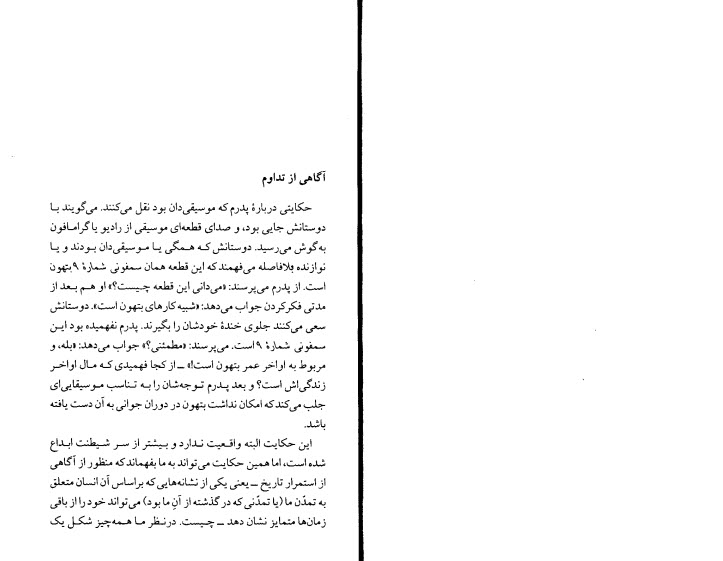 آگاهی از تداوم
حکایتی دربارهٔ پدرم که موسیقی‌دان بود نقل می‌کنند. می‌گویند با
دوستانش جایی بود، و صدای قطعه‌ای موسیقی از رادیو یا گرامافون
به‌گوش می‌رسید. دوستانش که همگی یا موسیقی‌دان بودند و یا
نوازنده بلافاصله می‌فهمند که این قطعه همان سمفونی شمارهٔ ۹ بتهون
است. از پدرم می‌پرسند: «می‌دانی این قطعه چیست؟» او هم بعد از
مدتی فکرکردن جواب می‌دهد: «شبیه کارهای بتهون است». دوستانش
سعی می‌کنند جلوی خندهٔ خودشان را بگیرند. پدرم نفهمیده بود این
سمفونی شمارهٔ ۹ است. می‌پرسند: «مطمئنی؟» جواب می‌دهد: «بله، و
مربوط به اواخر عمر بتهون است!» ــ از کجا فهمیدی که مال اواخر
زندگی‌اش است؟ و بعد پدرم توجه‌شان را به تناسب موسیقایی‌ای
جلب می‌کند که امکان نداشت بتهون در دوران جوانی به آن دست یافته
باشد.
این حکایت البته واقعیت ندارد و بیشتر از سر شیطنت ابداع
شده است، اما همین حکایت می‌تواند به ما بفهماند که منظور از آگاهی
از استمرار تاریخ ــ یعنی یکی از نشانه‌هایی که براساس آن انسان متعلق
به تمدّن ما (یا تمدّنی که در گذشته از آنِ ما بود) می‌تواند خود را از باقی
زمان‌ها متمایز نشان دهد ــ چیست. درنظر ما همه‌چیز شکل یک